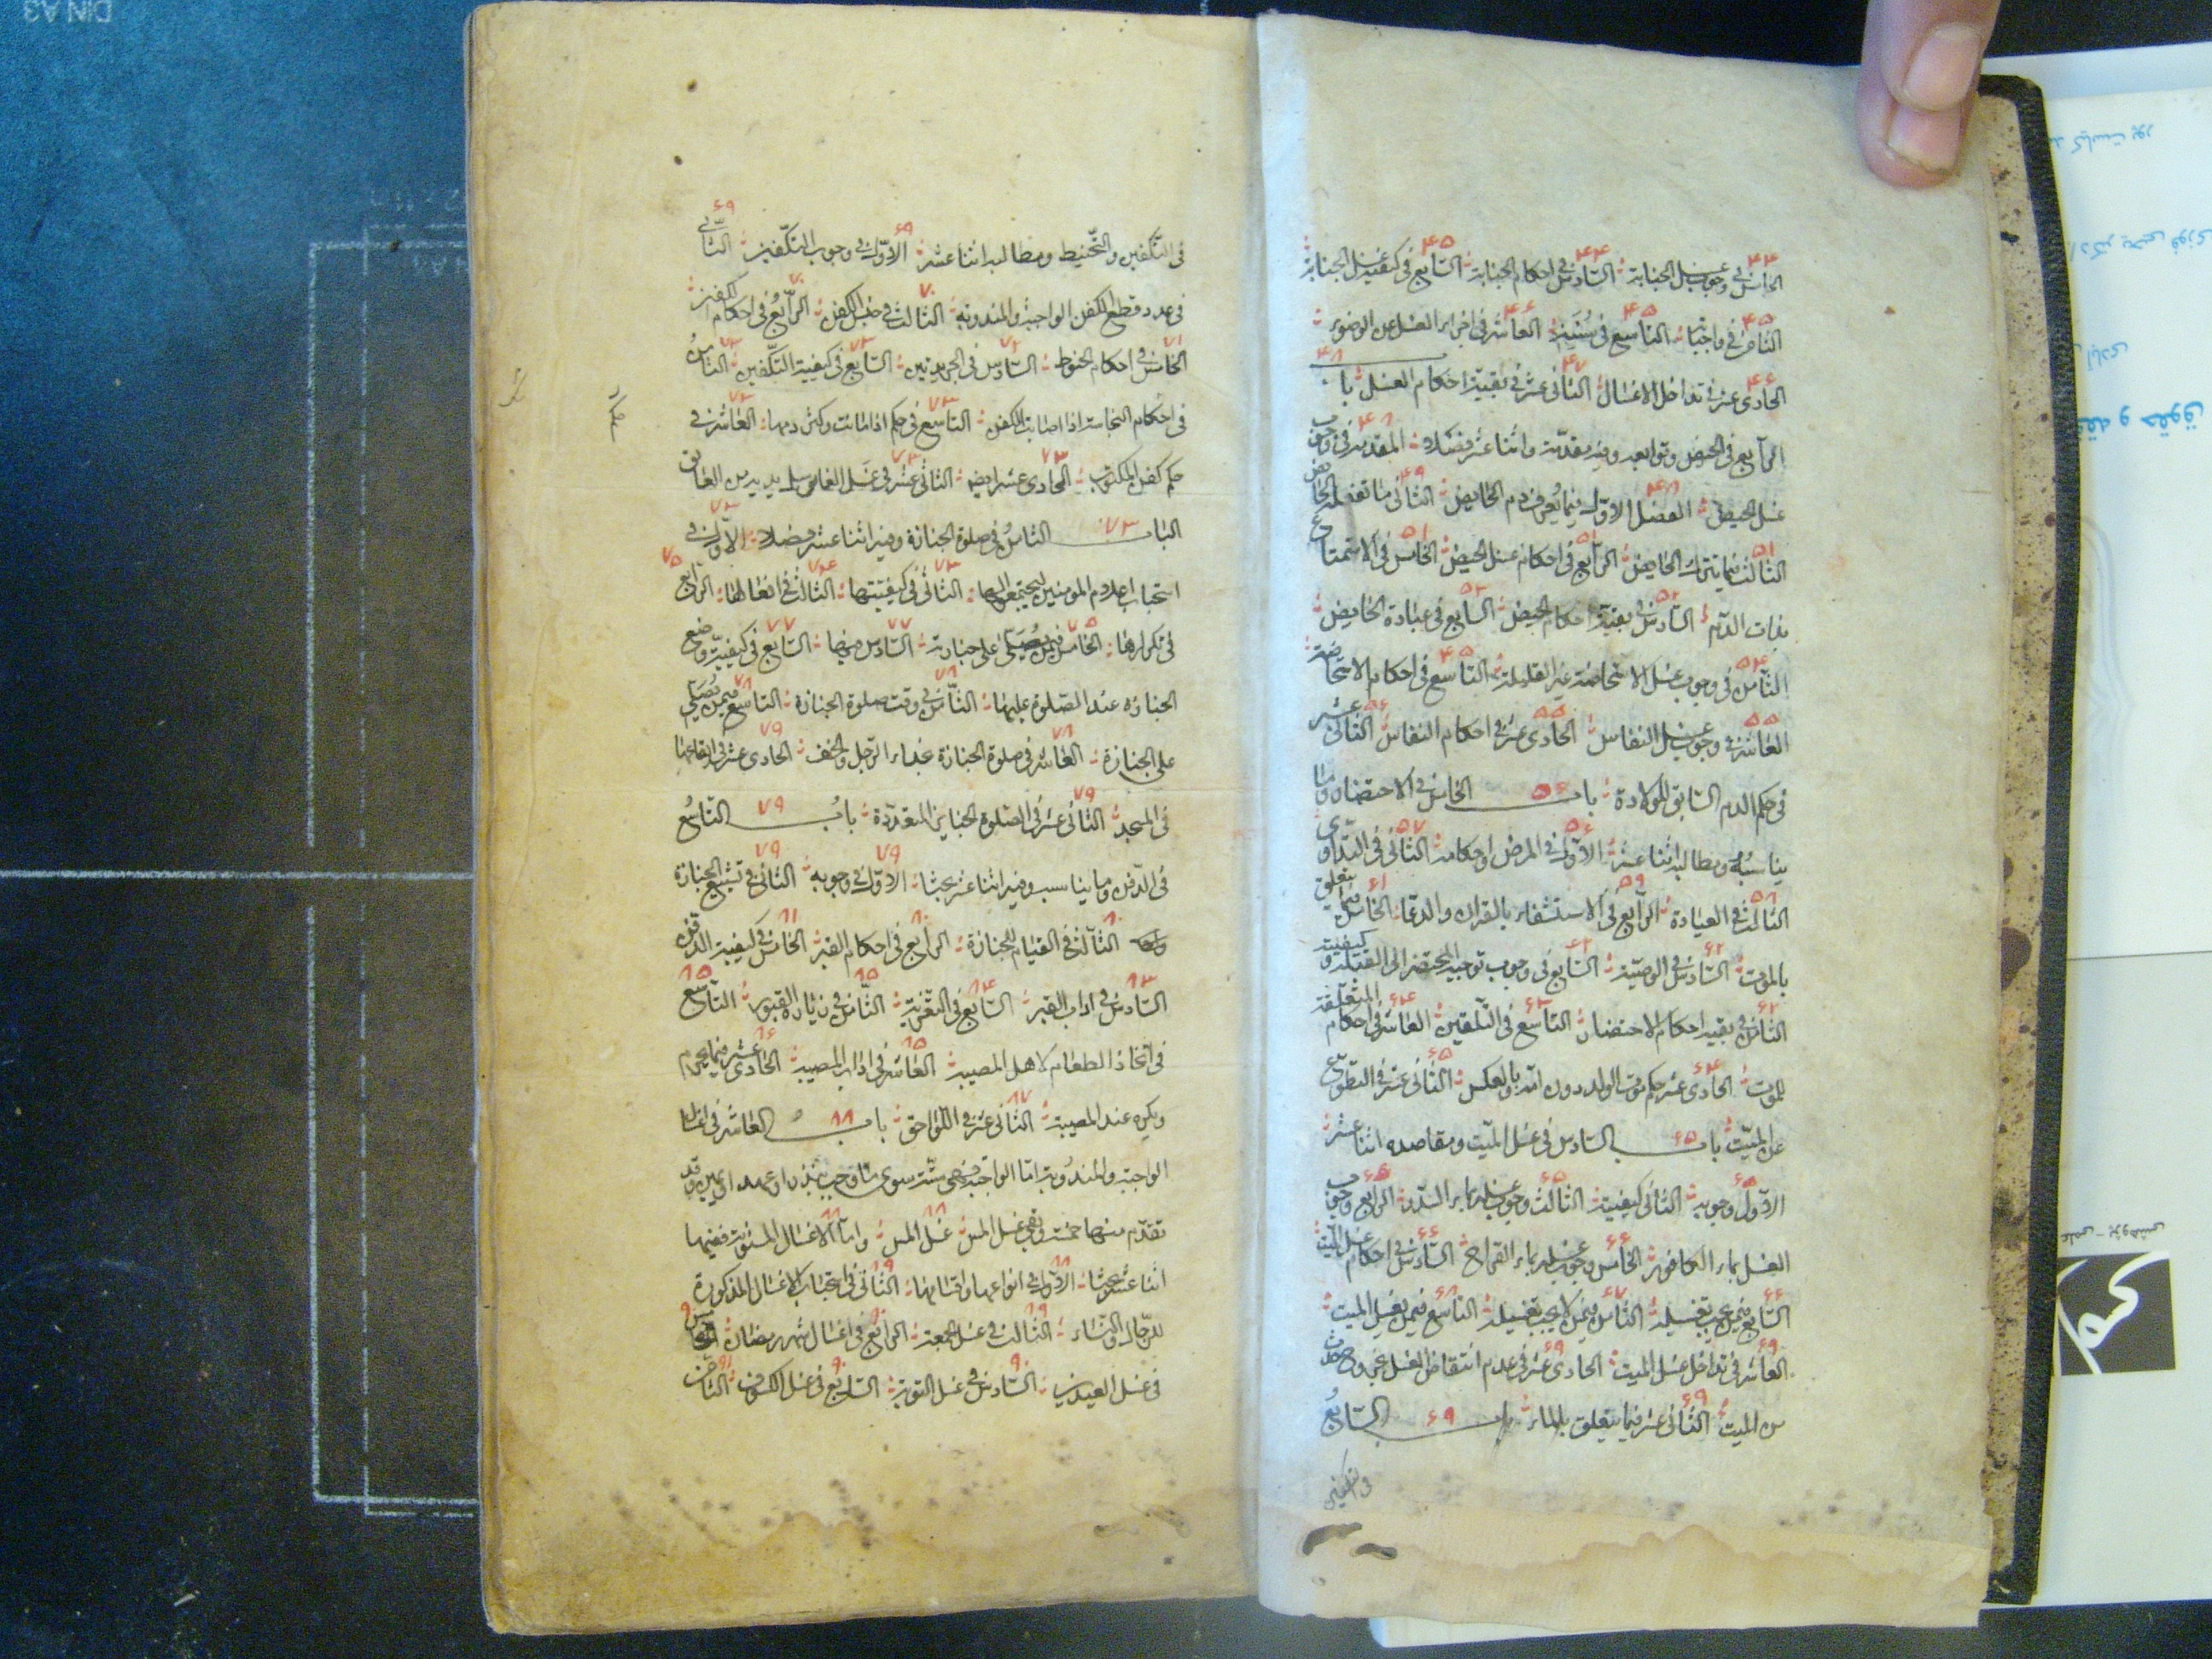 الخامس في وجوب غسل الجنابة السادس في احكام الجنابة السابع في كيفية غسل الجنابة
۴۴ ۴۴ ۴۵
الثامن في واجباته التاسع في سننه العاشر في اجزاء الغسل عن الوضوء
۴۵ ۴۵ ۴۶
الحادي عشر في تداخل الاغسال الثاني عشر في بقية احكام الغسل باب
۴۶ ۴۷ ۴۸
الرابع في الحيض وتوابعه وفيه مقدمة واثنا عشر فصلا المقدمة في وجوب
۴۸
غسل الحيض الفصل الاول فيما يعرف دم الحايض الثاني ما تفعله الحايض
۴۸ ۴۹
الثالث فيما يترك الحايض الرابع في احكام غسل الحيض الخامس في الاستمتاع
۵۱ ۵۱ ۵۱
بذات الدم السادس في بقية احكام الحيض السابع في عبادة الحايض
۵۲ ۵۳
الثامن في وجوب غسل الاستحاضة غير القليلة التاسع في احكام الاستحاضة
۵۴
العاشر في وجوب غسل النفاس الحادي عشر في احكام النفاس الثاني عشر
۵۵ ۵۵ ۵۶
في حكم الدم السابق للولادة باب الخامس في الاحتضار وما
۵۶
يناسبه ومطالبه اثنا عشر الاول في المرض واحكامه الثاني في التداوي
۵۶ ۵۷
الثالث في العيادة الرابع في الاستشفاء بالقران والدعا الخامس فيما يتعلق
۵۸ ۵۹ ۶۱
بالموت السادس في الوصية السابع في وجوب توجيه المحتضر الى القبلة وكيفيته
۶۲ ۶۲
الثامن في بقية احكام الاحتضار التاسع في التلقين العاشر في احكام المتعلقة
۶۲ ۶۳ ۶۴
للموت الحادي عشر حكم موت الولد دون امه وبالعكس الثاني عشر في التطوع
۶۴ ۶۵
عن الميت باب السادس في غسل الميت ومقاصده اثنا عشر
۶۵
الاول وجوبه الثاني كيفيته الثالث وجوب غسله بماء السدر الرابع وجوب
۶۵ ۶۵ ۶۶
الغسل بماء الكافور الخامس وجوب غسله بماء القراح السادس في احكام غسل الميت
۶۶ ۶۶
السابع فيمن يجب تغسيله الثامن فيمن لا يجب تغسيله التاسع فيمن يغسل الميت
۶۶ ۶۷ ۶۸
العاشر في تداخل غسل الميت الحادي عشر في عدم انتقاض الغسل بخروج حدث
۶۹ ۶۹
من الميت الثاني عشر فيما يتعلق بالماء باب السابع
۶۹ ۶۹
في التكفين
في التكفين والتحنيط ومطالبه اثنا عشر الاول في وجوب التكفين الثاني
۶۹ ۶۹
في عدد قطع الكفن الواجبة والمندوبة الثالث في جنس الكفن الرابع في احكام الكفن
۷۰ ۷۰
الخامس في احكام الحنوط السادس في الجريدتين السابع في كيفية التكفين الثامن
۷۱ ۷۲ ۷۳ ۷۳
في احكام النجاسة اذا اصابت الكفن التاسع في حكم اذا ماتت وكثر دمها العاشر في
۷۳ ۷۳
حكم كفن المكتوب الحادي عشر ايضا الثاني عشر في غسل الغاسل يديه من العاتق
۷۳ ۷۳
الباب الثامن في صلوة الجنازة وفيه اثنا عشر فصلا الاول في
۷۳ ۷۳
استحباب اعلام المومنين ليجتمع اليها الثاني في كيفيتها الثالث في افعالها الرابع
۷۳ ۷۴ ۷۵
في تكرارها الخامس فيمن يصلى على جنازته السادس ايضا السابع في كيفية وضع
۷۵ ۷۷ ۷۷
الجنازه عند الصلوة عليها الثامن في وقت صلوة الجنازة التاسع فيمن يصلي
۷۸ ۷۸
على الجنازة العاشر في صلوة الجنازة بحذاء الرجل والخف الحادي عشر في ايقاعها
۷۸ ۷۹
في المسجد الثاني عشر في الصلوة لجنايز المتعددة باب التاسع
۷۹ ۷۹
في الدفن وما يناسبه وفيه اثنا عشر بحثا الاول في وجوبه الثاني في تشييع الجنازة
۷۹ ۷۹
الثالث في القيام للجنازة الرابع في احكام القبر الخامس في كيفية الدفن
۸۰ ۸۰ ۸۱
السادس في اداب القبر السابع في التعزية الثامن في زيارة القبور التاسع
۸۳ ۸۴ ۸۵ ۸۵
في اتخاذ الطعام لاهل المصيبة العاشر في اداب المصيبة الحادي عشر فيما يحرم
۸۵ ۸۶
ويكره عند المصيبة الثاني عشر في اللواحق باب العاشر في اغسال
۸۷ ۸۸
الواجبة والمندوبة اما الواجبة فهي ستة سوى ما وجب بنذر او عهد او يمين وقد
تقدم منها خمسة وبقي غسل المس غسل المس واما الاغسال المسنونة ففيها
۸۸ ۸۸
اثنا عشر بحثا الاول في انواعها واقسامها الثاني في استحباب الاغسال المذكورة
۸۸ ۸۹
للرجال والنساء الثالث في غسل الجمعة الرابع في اغسال شهر رمضان الخامس
۸۹ ۹۰
في غسل العيدين السادس في غسل التوبة السابع في غسل الكسوف الثامن
۹۰ ۹۰ ۹۱